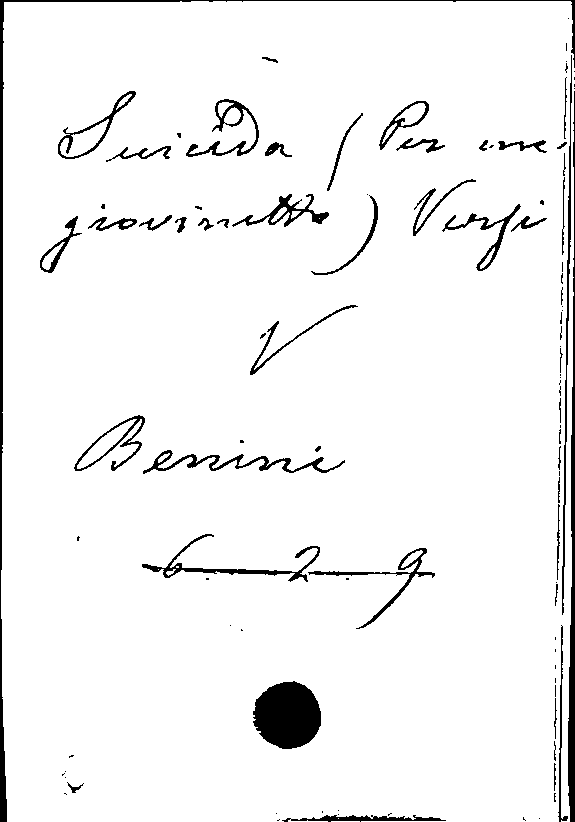 Suicida (Per una
giovinetta) Versi
V
Benini
6 2 9